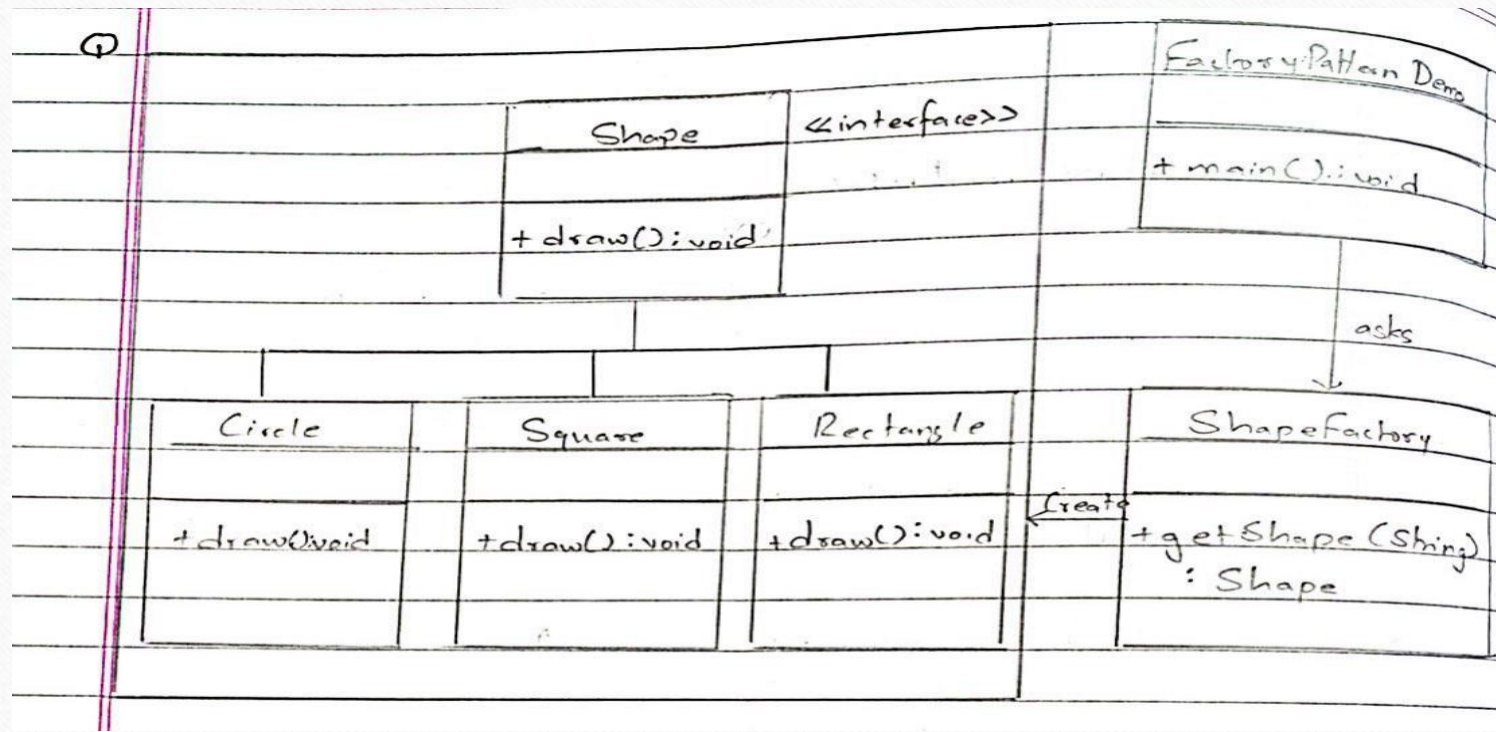 Q
Shape
<<interface>>
+ draw() : void
FactoryPattern Demo
+ main() : void
asks
Circle
+ draw() : void
Square
+ draw() : void
Rectangle
+ draw() : void
Create
ShapeFactory
+ getShape (String)
: Shape